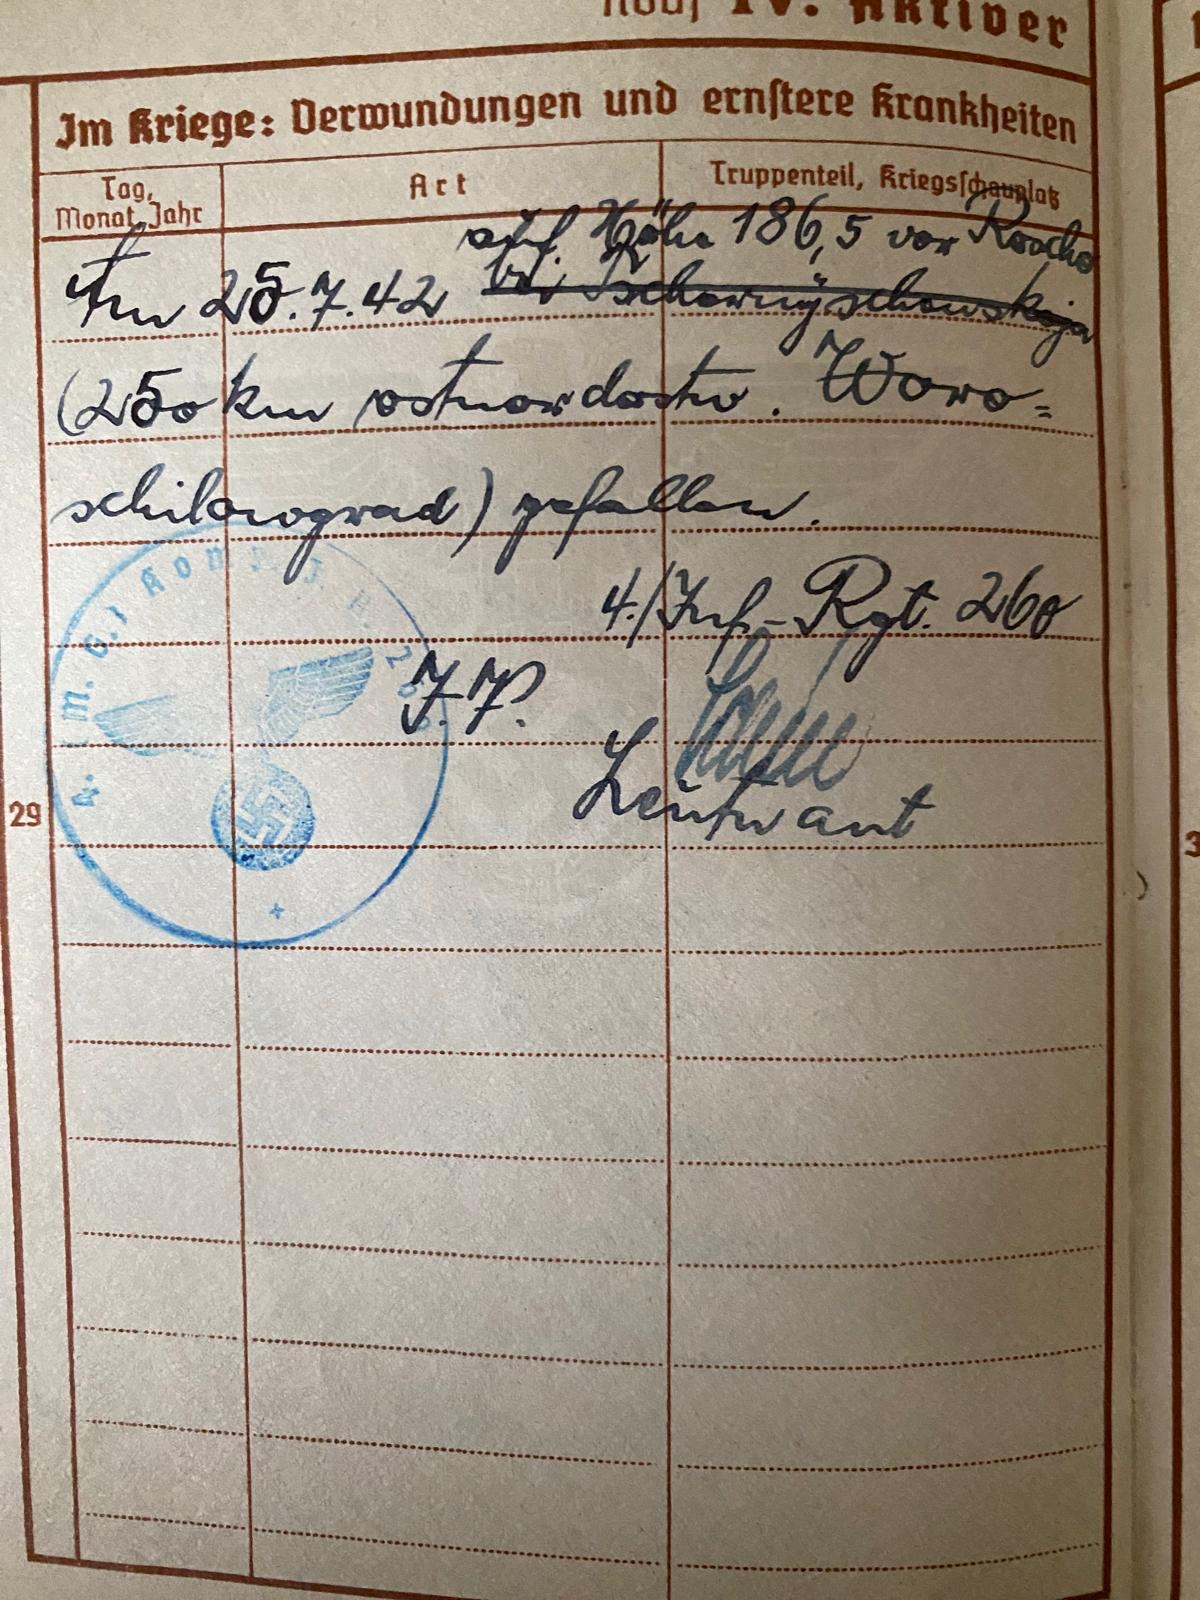 noch IV. Aktiver
Im Kriege: Verwundungen und ernstere Krankheiten
Tag, Monat, Jahr
Art
Truppenteil, Kriegsschauplatz
auf Höhe 186,5 vor
Am 25.7.42 bei Tschernyschewskaja
(250 km ostnordostw. Woro=
schilowgrad) gefallen.
4./Inf.-Rgt. 260
J.V.
Leutnant
4. (M. G.) Komp. J. R. 260
29
3